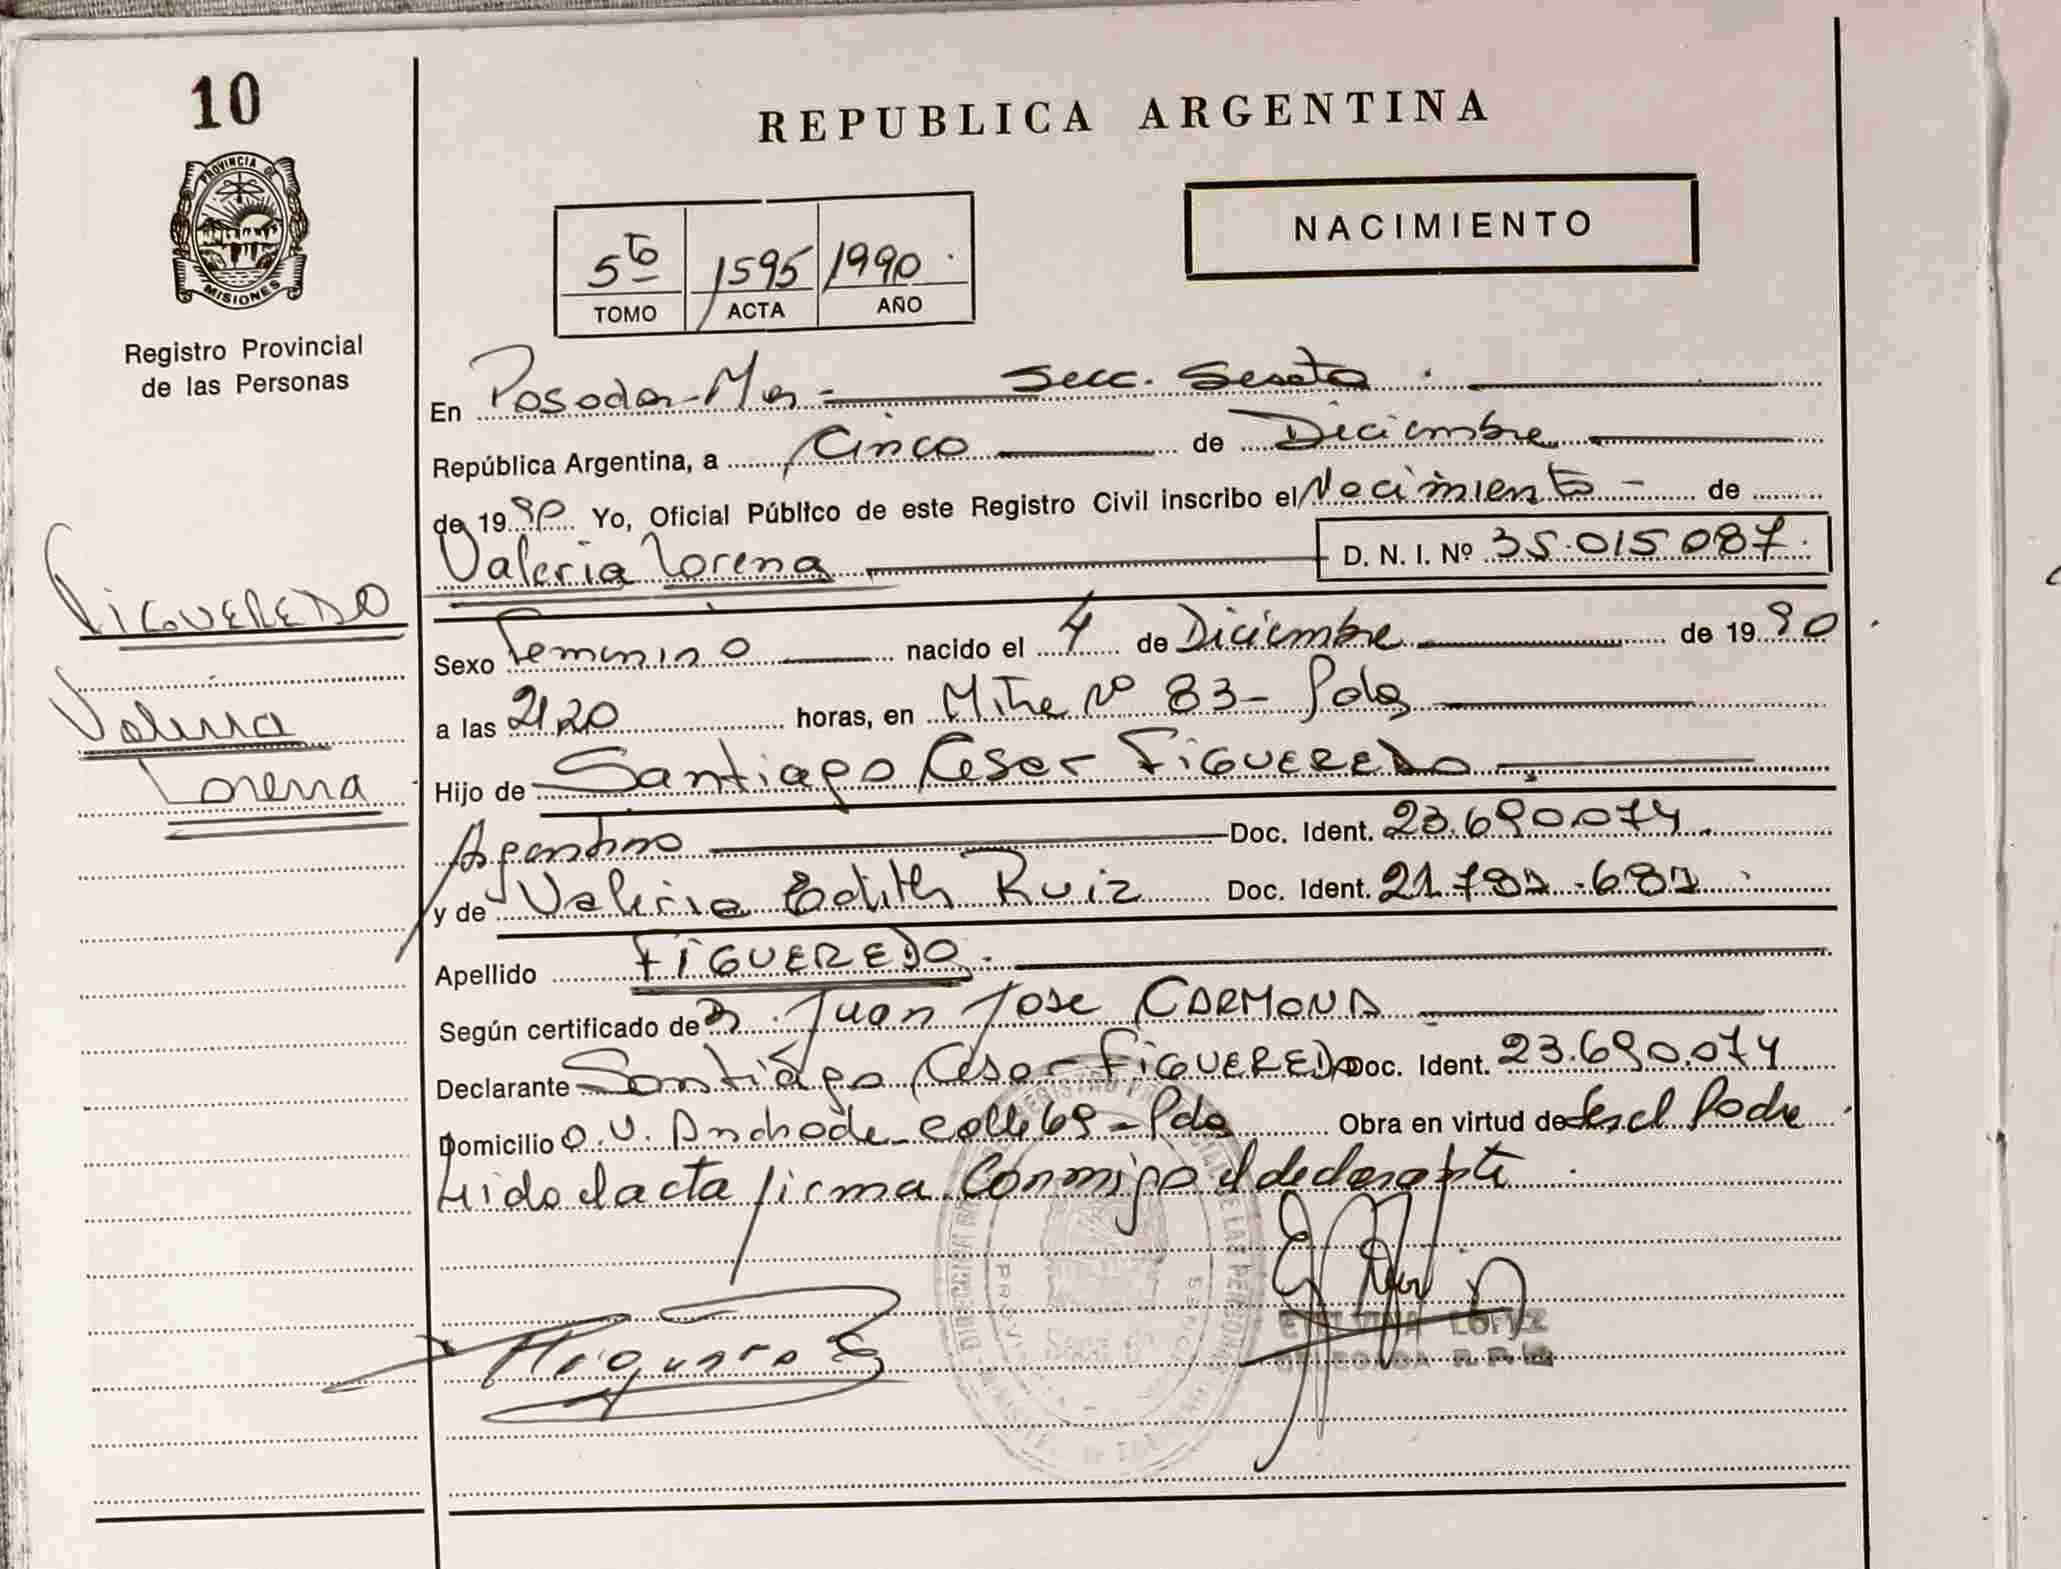 10
PROVINCIA DE
MISIONES
Registro Provincial
de las Personas
REPUBLICA ARGENTINA
NACIMIENTO
5to 1595 1990
TOMO ACTA AÑO
En Posadas - Mnes - Secc. Sexta
República Argentina, a Cinco de Diciembre
de 1990 Yo, Oficial Público de este Registro Civil inscribo el Nacimiento - de
Valeria Lorena D. N. I. Nº 35.015.087
FIGUEREDO
Valeria
Lorena
Sexo Femenino nacido el 4 de Diciembre de 1990
a las 21,20 horas, en Mitre Nº 83 - Pdas
Hijo de Santiago Cesar FIGUEREDO
Argentino Doc. Ident. 23.690.074
y de Valeria Edith Ruiz Doc. Ident.
Apellido FIGUEREDO
Según certificado de Juan Jose CARMONA
Declarante Santiago Cesar FIGUEREDO Doc. Ident. 23.690.074
Domicilio O.V. Andrade - calle 69 - Pdas Obra en virtud de Ser el Padre
Leida el acta firma Conmigo el declarante
LOPEZ